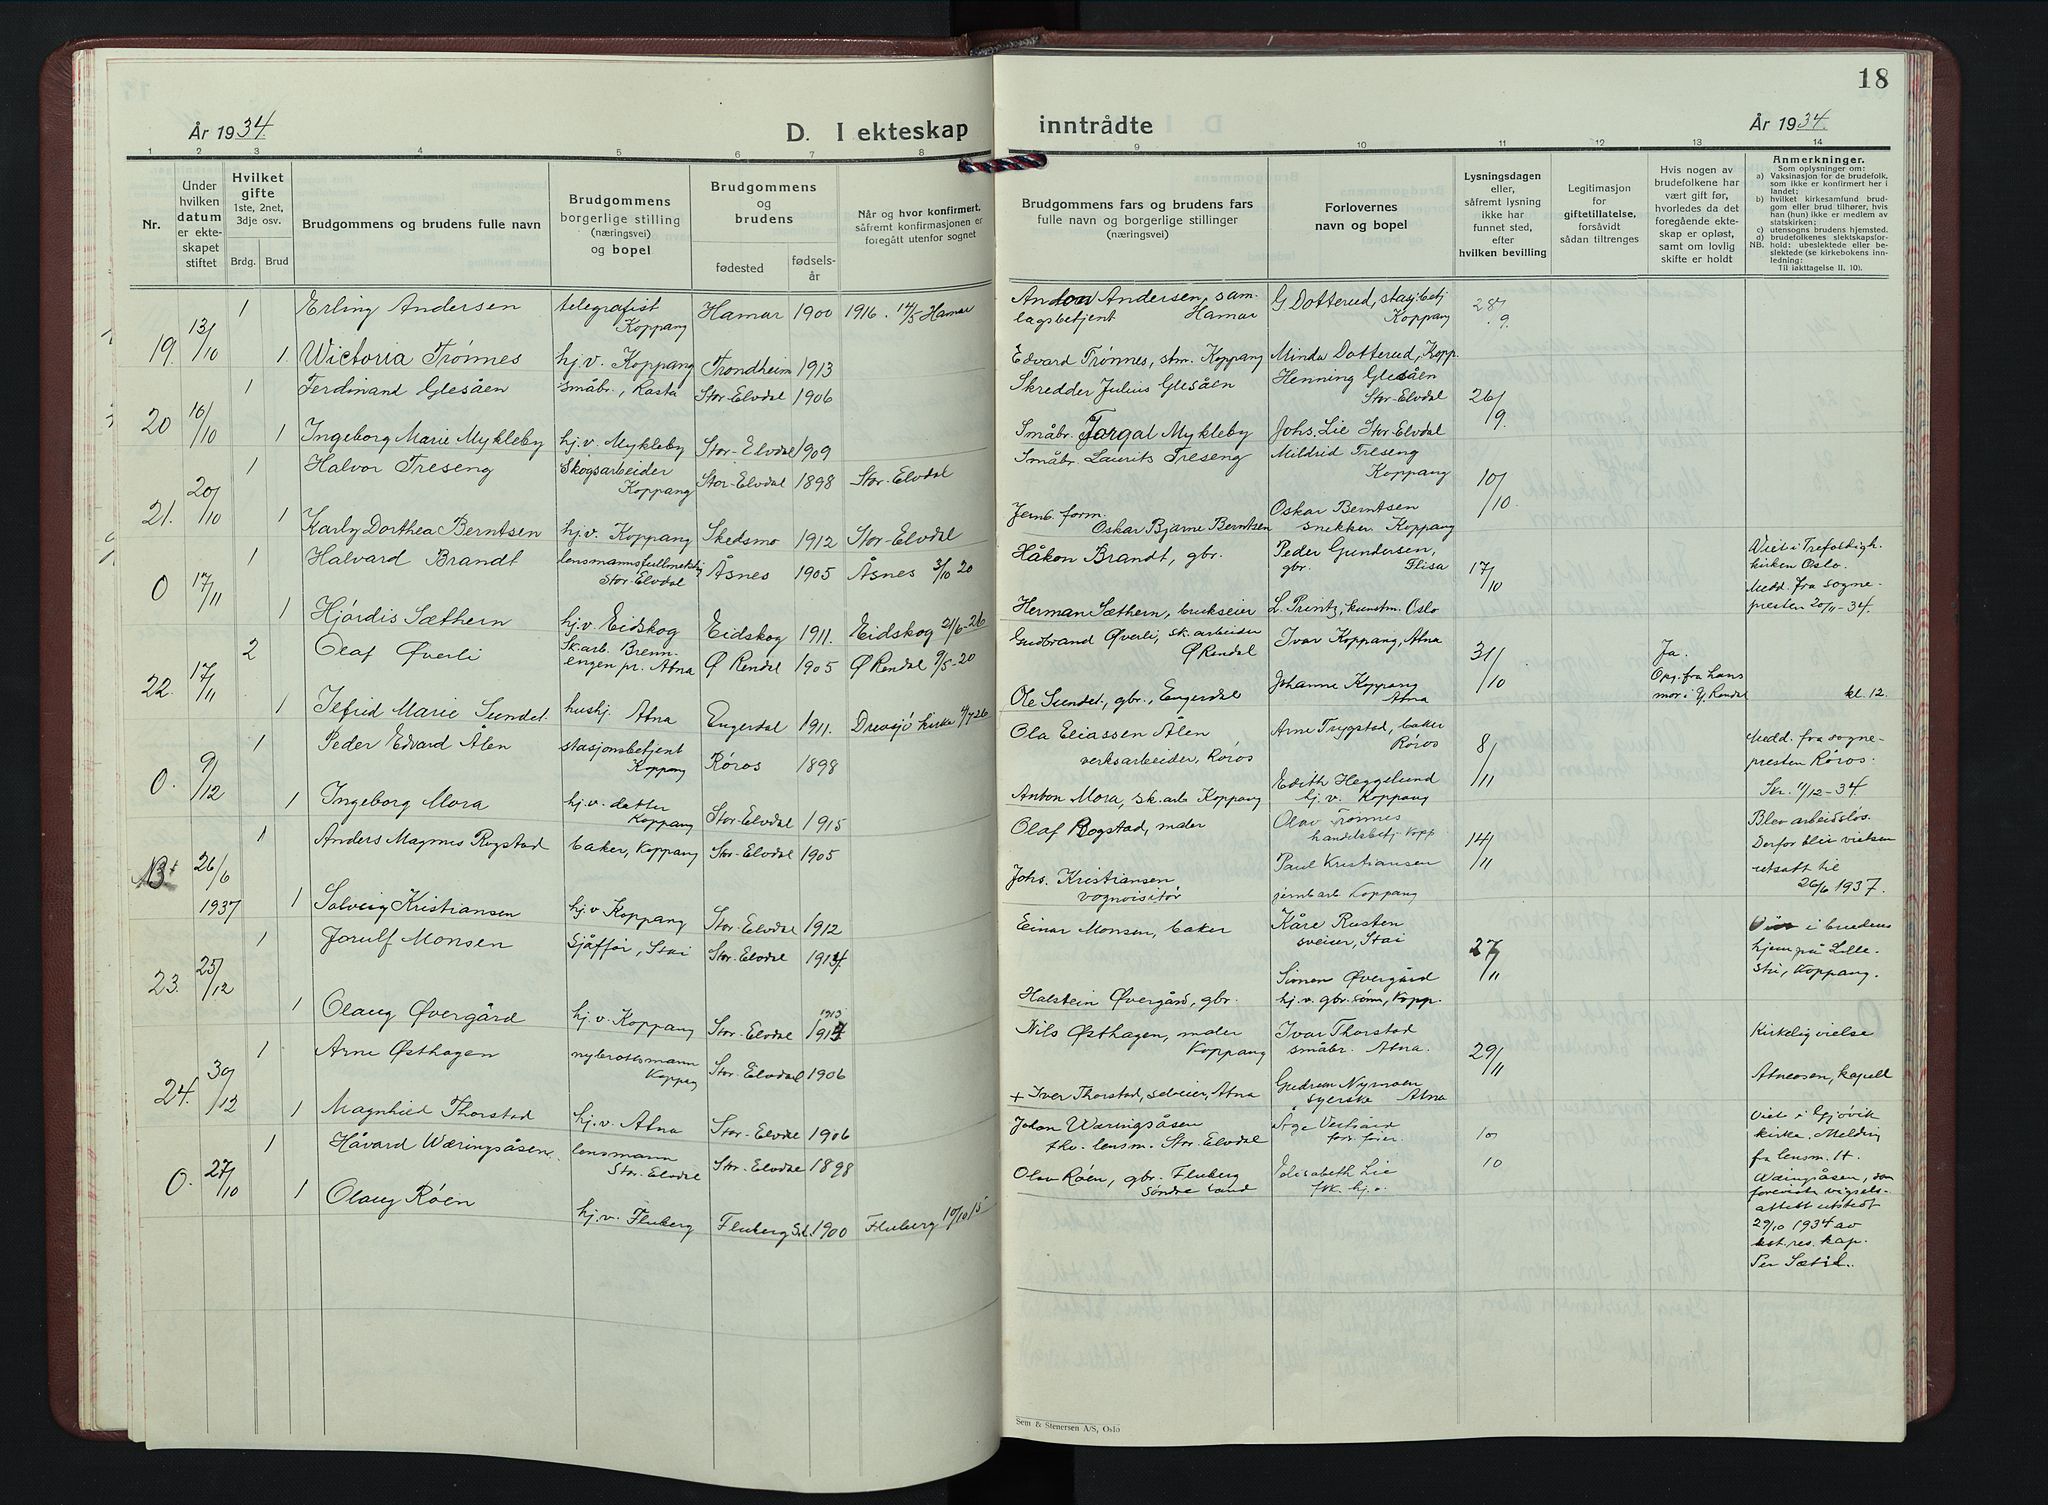 År 1934.
D. I ekteskap
1 2 3 4 5 6 7 8
Nr.
Under hvilken datum er ekteskapet stiftet
Hvilket gifte 1ste, 2net, 3dje osv.
Brdg. Brud
Brudgommens og brudens fulle navn
Brudgommens borgerlige stilling (næringsvei) og bopel
Brudgommens og brudens
fødested
fødselsår
Når og hvor konfirmert, såfremt konfirmasjonen er foregått utenfor sognet
13/10 1 Erling Andersen telegrafist Koppang Hamar 1900 1916. 14/5 Hamar
19. 1 Wictoria Trønnes hj.v. Koppang Trondheim 1913
1 Ferdinand Glesåen småbr., Rasta Stor-Elvdal 1906
20 16/10 1 Ingeborg Marie Mykleby hj.v. Mykleby Stor-Elvdal 1909
1 Halvor Treseng Skogsarbeider Koppang Stor-Elvdal 1898 Stor-Elvdal
21. 20/10 1 Karly Dorthea Berntsen hj.v. Koppang Skedsmo 1912 Stor-Elvdal
1 Halvard Brandt lensmannsfullmektig Stor-Elvdal Åsnes 1905 Åsnes 3/10 20
0 17/11 1 Hjørdis Sæthern hj.v. Eidskog Eidskog 1911. Eidskog 21/6-26
2 Olaf Øverli Sk.arb. Brennengen pr. Atna Ø Rendal 1905 Ø Rendal 9/5-20
22. 17/11 1 Marie Sundet. hushj. Atna Engerdal 1911. Drevsjø kirke 4/7 26
1 Peder Edvard Ålen stasjonsbetjent Koppang Røros 1898
0. 9/12 1 Ingeborg Mora hj.v. datter Koppang Stor-Elvdal 1915
1 Anders Magnus Rogstad baker, Koppang Stor-Elvdal 1905
26/6 1937 1 Solveig Kristiansen hj.v Koppang Stor-Elvdal 1912
1 Jorulf Monsen sjåffør, Stai Stor-Elvdal 1914
23. 25/12 1 Olaug Øvergård hj.v. Koppang Stor-Elvdal 1913
1 Arne Østhagen nybrottsmann Koppang Stor-Elvdal 1906
24. 30/12 1 Magnhild Thorstad hj.v. Atna Stor-Elvdal 1906
1 Håvard Wæringsåsen. lensmann Stor-Elvdal Stor-Elvdal 1898
0. 27/10 1 Olaug Røen hj.v. Fluberg Fluberg S.l. 1900 Fluberg 10/10 15
18
inntrådte
År 1934.
9 10 11 12 13 14
Brudgommens fars og brudens fars fulle navn og borgerlige stillinger (næringsvei)
Forlovernes navn og bopel
Lysningsdagen eller, såfremt lysning ikke har funnet sted, efter hvilken bevilling
Legitimasjon for giftetillatelse, forsåvidt sådan tiltrenges
Hvis nogen av brudefolkene har vært gift før, hvorledes da det foregående ekteskap er opløst, samt om lovlig skifte er holdt
Anmerkninger.
Som oplysninger om:
a) Vaksinasjon for de brudefolk, som ikke er konfirmert her i landet;
b) hvilket kirkesamfund brudgom eller brud tilhører, hvis han (hun) ikke er medlem av statskirken;
c) utensogns brudens hjemsted.
d) brudefolkenes slektskapsforhold: ubeslektede eller beslektede (se kirkebokens innledning:
NB. Til iakttagelse II. 10).
Anton Andersen, samlagsbetjent Hamar G. Dotterud, stasj.betj Koppang 28/9.
Edvard Trønnes, stm. Koppang Minda Dotterud, Kopp.
Skredder Julius Glesåen Henning Glesåen Stor-Elvdal 26/9
Småbr. Torgal Mykleby Johs. Lie Stor-Elvdal
Småbr. Laurits Treseng Mildrid Treseng Koppang 10/10
Jernb. form. Oskar Bjarne Berntsen Oskar Berntsen snekker Koppang
Håkon Brandt, gbr. Peder Gundersen, gbr. Flisa 17/10 Viet i Trefoldigh. kirken Oslo. Medd. fra sognepresten 20/11-34.
Herman Sæthern, brukseier L. Printz, kunstm. Oslo
Gudbrand Øverli, sk.arbeider Ø Rendal Ivar Koppang, Atna 31/10 Ja. Opg. fra hans mor i Y. Rendal kl. 12.
Ole Sundet, gbr., Engerdal Johanne Koppang Atna
Ola Eliassen Ålen verksarbeider, Røros Arne Trygstad, baker Røros 8/11 Medd. fra sognepresten Røros. Skr. 11/12-34.
Anton Mora, sk.arb Koppang Edith Heggelund hj.v. Koppang
Olaf Rogstad, maler Olav Trønnes handelsbetj. Kopp. 14/11 Blev arbeidsløs. Derfor blir vielsen utsatt til 26/6 1937.
Johs. Kristiansen vognvisitør Paul Kristiansen jernbarb Koppang
Einar Monsen, baker Kåre Rusten sveiser, Stai 27/11 i brudens hjem på Lillesti, Koppang.
Halstein Øvergård, gbr. Simen Øvergård hj.v. gbr.sønn, Kopp.
Nils Østhagen, maler Koppang Ivar Thorstad småbr. Atna. 29/11 Kirkelig vielse Atneosen, kapell
+ Iver Thorstad, selveier, Atna Gudrun Nymoen syerske Atna
Johan Wæringsåsen fhv. lensm. Stor-Elvdal Åge 10/10 Viet i Gjøvik kirke. Melding fra lensm. H. Wæringsåsen, som foreviste vigselsattest utstedt 29/10 1934 av kst. res. kap. Per Sætil.
Olav Røen, gbr. Fluberg Søndre Land Elisabeth Lie
Sem & Stenersen A/S, Oslo